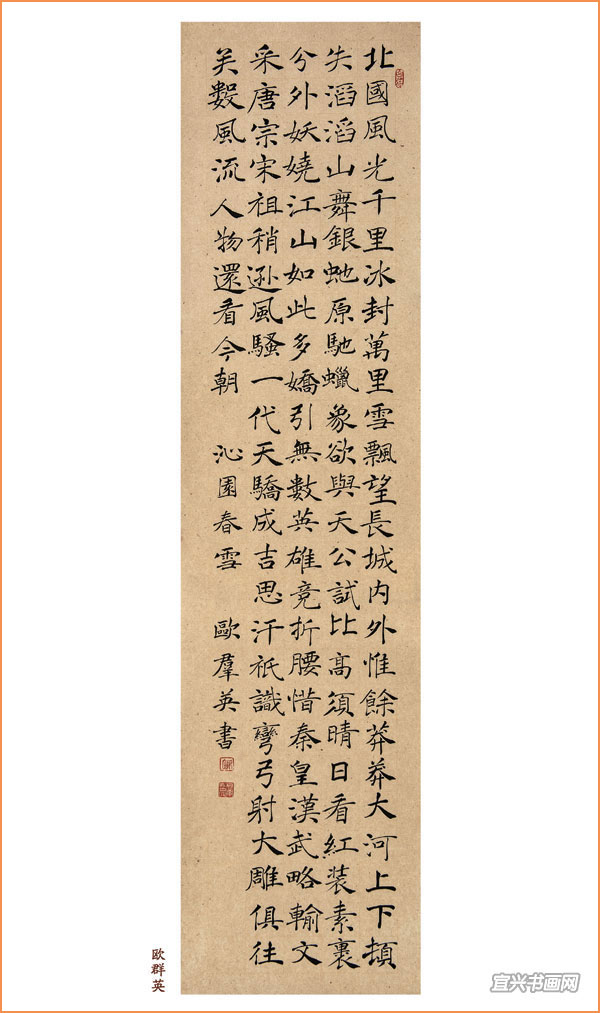 北國風光千里冰封萬里雪飄望長城内外惟餘莽莽大河上下頓
失滔滔山舞銀虵原馳蠟象欲與天公試比高須晴日看紅装素裹
兮外妖嬈江山如此多嬌引無數英雄竞折腰惜秦皇漢武略輸文
采唐宗宋祖稍遜風騷一代天驕成吉思汗祇識彎弓射大雕俱往
矣數風流人物還看今朝 沁園春雪 歐羣英書
欧群英
宜兴书画网